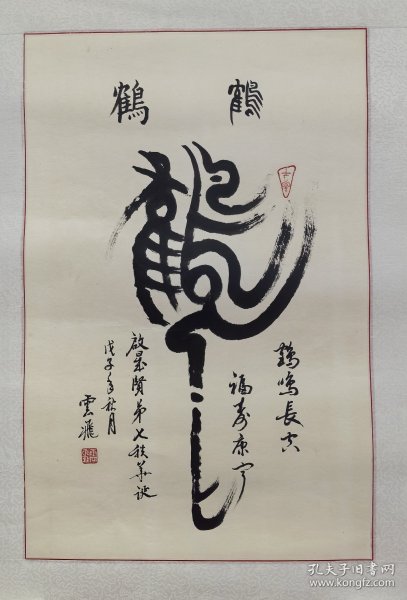 鶴 鶴
鶴鳴長空
福壽康寧
啟星賢弟七秩華誕
戊子年秋月
雲飛
孔夫子旧书网
www.kongfz.com